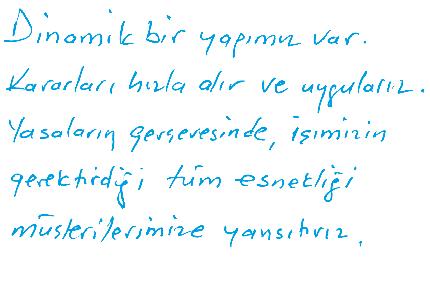 Dinamik bir yapımız var.
Kararları hızla alır ve uygularız.
Yasaların çerçevesinde, işimizin
gerektirdiği tüm esnekliği
müşterilerimize yansıtırız.